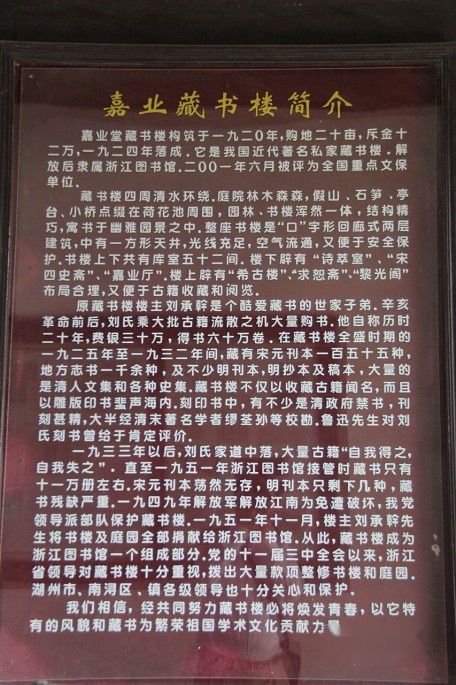 嘉业藏书楼简介
嘉业堂藏书楼构筑于一九二0年，购地二十亩，斥金十
二万，一九二四年落成．它是我国近代著名私家藏书楼．解
放后隶属浙江图书馆．二00一年六月被评为全国重点文保
单位．
藏书楼四周清水环绕．庭院林木森森，假山、石笋、亭
台、小桥点缀在荷花池周围，园林、书楼浑然一体，结构精
巧，寓书于幽雅园景之中．整座书楼是“口”字形回廊式两层
建筑，中有一方形天井，光线充足，空气流通，又便于安全保
护．书楼上下共有库室五十二间．楼下辟有“诗萃室”、“宋
四史斋”、“嘉业厅”．楼上辟有“希古楼”、“求恕斋”、“黎光阁”
布局合理，又便于古籍收藏和阅览．
原藏书楼楼主刘承幹是个酷爱藏书的世家子弟．辛亥
革命前后，刘氏乘大批古籍流散之机大量购书．他自称历时
二十年，费银三十万，得书六十万卷．在藏书楼全盛时期的
一九二五年至一九三二年间，藏有宋元刊本一百五十五种，
地方志书一千余种，及不少明刊本，明抄本及稿本，大量的
是清人文集和各种史集．藏书楼不仅以收藏古籍闻名，而且
以雕版印书蜚声海内．刻印书中，有不少是清政府禁书，刊
刻甚精，大半经清末著名学者缪荃孙等校勘．鲁迅先生对刘
氏刻书曾给于肯定评价．
一九三三年以后，刘氏家道中落，大量古籍“自我得之，
自我失之”．直至一九五一年浙江图书馆接管时藏书只有
十一万册左右．宋元刊本荡然无存，明刊本只剩下几种，藏
书残缺严重．一九四九年解放军解放江南为免遭破坏，我党
领导派部队保护藏书楼．一九五一年十一月，楼主刘承幹先
生将书楼及庭园全部捐献给浙江图书馆．从此，藏书楼成为
浙江图书馆一个组成部分．党的十一届三中全会以来，浙江
省领导对藏书楼十分重视，拨出大量款项整修书楼和庭园．
湖州市、南浔区、镇各级领导也十分关心和保护．
我们相信，经共同努力藏书楼必将焕发青春，以它特
有的风貌和藏书为繁荣祖国学术文化贡献力量